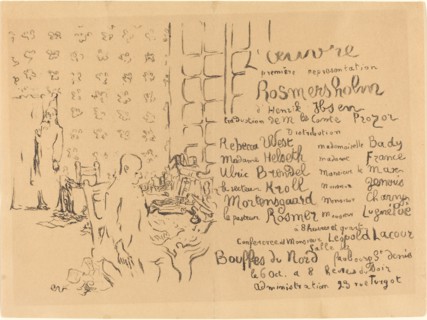 L'œuvre
première representation
Rosmersholm
d'Henrik Ibsen
traduction de M le Comte Prozor
Distribution
Rebecca West mademoiselle Bady
Madame Helseth madame France
Ulric Brendel Monsieur le Max
le recteur Kroll Monsieur
Mortensgaard Monsieur Charny
le pasteur Rosmer Monsieur Lugné Poe
à 8 heures et quart
Conference de Monsieur Léopold Lacour
Salle des
Bouffes du Nord faubourg St Denis
le 6 Oct. a 8 heures du soir
administration 23 rue Turgot